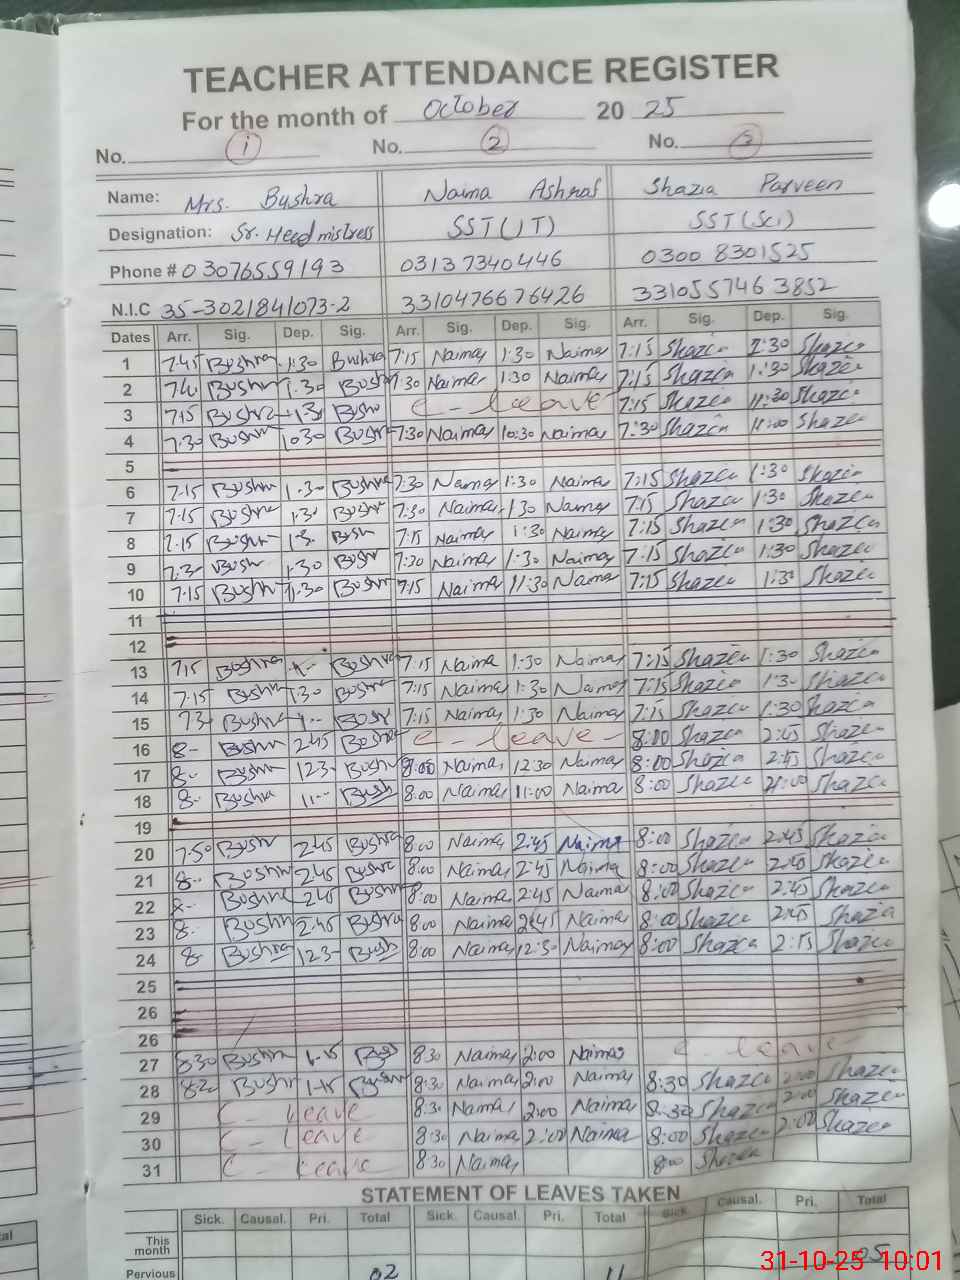 TEACHER ATTENDANCE REGISTER
For the month of October 20 25
No. 1 No. 2 No. 3
Name: Mrs. Bushra Naima Ashraf Shazia Parveen
Designation: Sr. Head mistress SST(IT) SST(Sci)
Phone # 03076559193 03137340446 0300 8301525
N.I.C 35-3021841073-2 3310476676426 3310557463852
Dates Arr. Sig. Dep. Sig. Arr. Sig. Dep. Sig. Arr. Sig. Dep. Sig.
1 7.45 Bushra 1:30 Bushra 7:15 Naima 1:30 Naima 7:15 Shazia Shazia
2 Bushra 1.30 Bush 7:30 Naima 1:30 Naima 7:15 Shazia 1:30 Shazia
3 7:15 Bushra C - leave 7:15 Shazia 11:30 Shazia
4 7.30 Bushra 1030 Bushra 7:30 Naima 10:30 Naima 7:30 Shazia 11:00 Shazia
5
6 7.15 Bushra 1.30 Bushra 7:30 Naima 1:30 Naima 7:15 Shazia 1:30 Shazia
7 7.15 Bushra 1.30 Bushra 7:30 Naima 1:30 Naima 7:15 Shazia 1:30 Shazia
8 7.15 Bushra 1.3 Bush 7:15 Naima 1:30 Naima 7:15 Shazia 1:30 Shazia
9 7.3 Bushra 1.30 Bushr 7:30 Naima 1:30 Naima 7:15 Shazia 1:30 Shazia
10 7.15 Bushra 11.30 Bushra 7:15 Naima 11:30 Naima 7:15 Shazia 1:30 Shazia
11
12
13 7.15 Bushra Bushra 7:15 Naima 1:30 Naima 7:15 Shazia 1:30 Shazia
14 7.15 Bushra 1.30 Bushra 7:15 Naima 1:30 Naima 7:15 Shazia 1:30 Shazia
15 73 Bushra 1-- Bushr 7:15 Naima 1:30 Naima 7:15 Shazia 1:30 Shazia
16 8- Bushra 2.45 Bushra C - leave - 8:00 Shazia 2:45 Shazia
17 8- Bushra 123- Bushra 8:00 Naima 12:30 Naima 8:00 Shazia 2:45 Shazia
18 8-- Bushra 11-- Bush 8:00 Naima 11:00 Naima 8:00 Shazia Shazia
19
20 7.50 Bushr 2.45 Bushra 8:00 Naima 2:45 Naima 8:00 Shazia 2:45 Shazia
21 8-- Bushra 2.45 Bushra 8:00 Naima 2:45 Naima 8:00 Shazia 2:45 Shazia
22 8-- Bushra 2.45 Bushra 8:00 Naima 2:45 Naima 8:00 Shazia 2:45 Shazia
23 8- Bushra 2.45 Bushra 8:00 Naima 2:45 Naima 8:00 Shazia 2:45 Shazia
24 8- Bushra 123- Bush 8:00 Naima 12:30 Naima 8:00 Shazia Shazia
25
26
26
27 8.30 Bushra 1.15 8:30 Naima 2:00 Naima C - leave
28 Bushr 1.15 Bushra 8:30 Naima 2:00 Naima 8:30 Shazia 2:00 Shazia
29 C - leave 8:30 Naima 2:00 Naima 8:30 Shazia 2:00 Shazia
30 C - leave 8:30 Naima 2:00 Naima 8:00 Shazia 2:00 Shazia
31 C - leave 8:30 Naima 8:00 Shazia
STATEMENT OF LEAVES TAKEN
Sick. Causal. Pri. Total Sick. Causal. Pri. Total Sick. Causal. Pri. Total
This month 05
Pervious 02 11
31-10-25 10:01